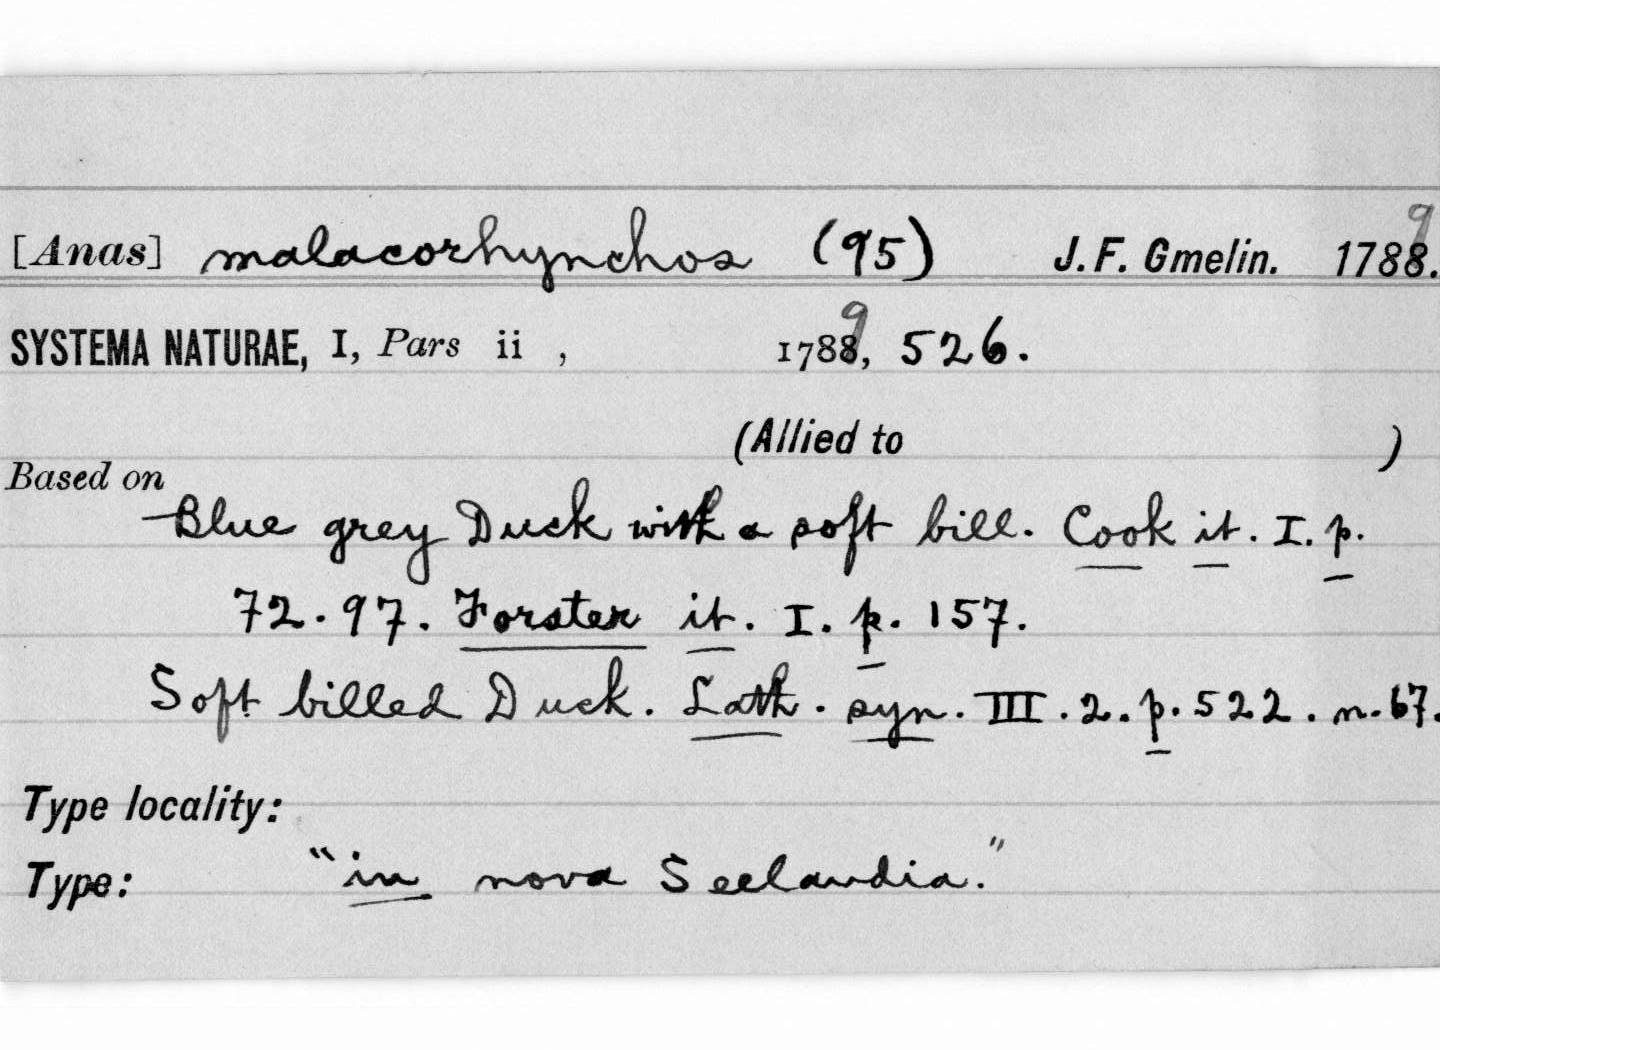 [Anas] malacorhynchos (95) J. F. Gmelin. 17889.
SYSTEMA NATURAE, I, Pars ii , 17889, 526.
(Allied to )
Based on
Blue grey Duck with a soft bill. Cook it. I. p.
72. 97. Forster it. I. p. 157.
Soft billed Duck. Lath. syn. III. 2. p. 522. n. 67.
Type locality:
Type: "in nova Seelandia."